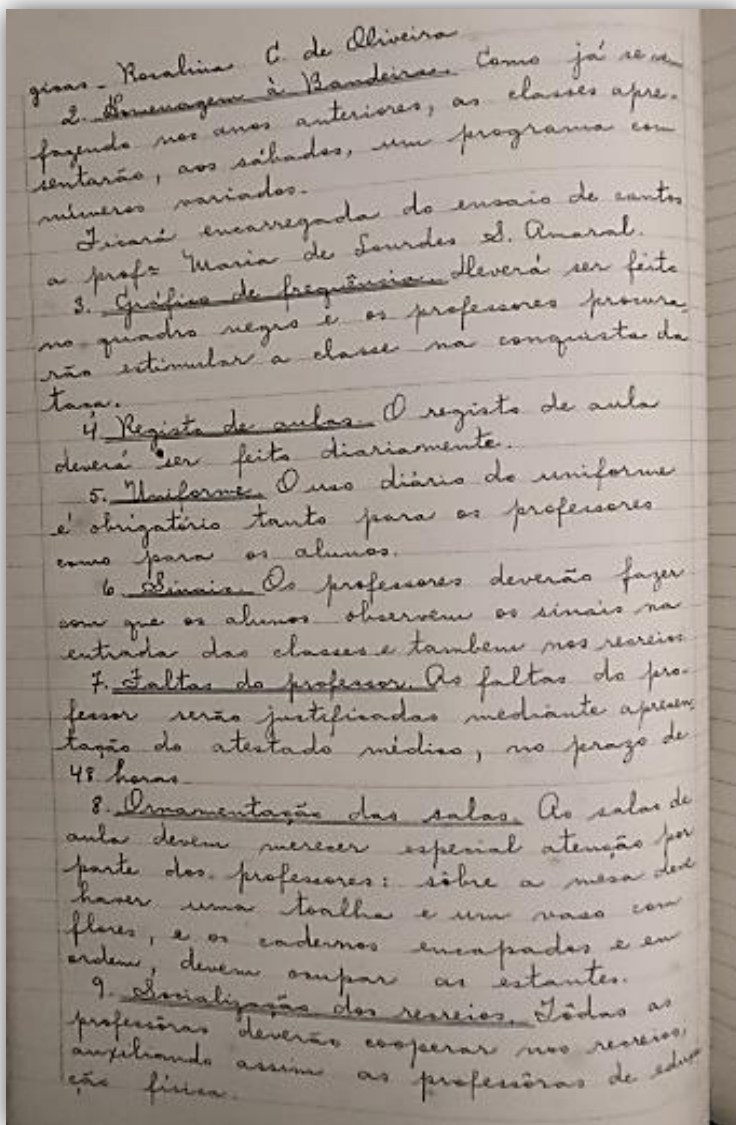 gicas - Rosalina C. de Oliveira
2. Homenagem à Bandeira. Como já se vem
fazendo nos anos anteriores, as classes apre-
sentarão, aos sábados, um programa com
números variados.
Ficará encarregada do ensaio de cantos
a profª Maria de Lourdes S. Amaral.
3. Gráfico de frequência. Deverá ser feito
no quadro negro e os professores procura-
rão estimular a classe na conquista da
taça.
4 Registo de aulas. O registo de aula
deverá ser feito diariamente.
5. Uniforme. O uso diário do uniforme
é obrigatório tanto para os professores
como para os alunos.
6 Sinais. Os professores deverão fazer
com que os alunos observem os sinais na
entrada das classes e tambem nos recreios
7. Faltas do professor. As faltas do pro-
fessor serão justificadas mediante apresen-
tação do atestado médico, no prazo de
48 horas.
8. Ornamentação das salas. As salas de
aula devem merecer especial atenção por
parte dos professores: sôbre a mesa deve
haver uma toalha e um vaso com
flores, e os cadernos encapados e em
ordem, devem ocupar as estantes.
9. Socialização dos recreios. Tôdas as
professôras deverão cooperar nos recreios,
auxiliando assim as professôras de educa
ção física.